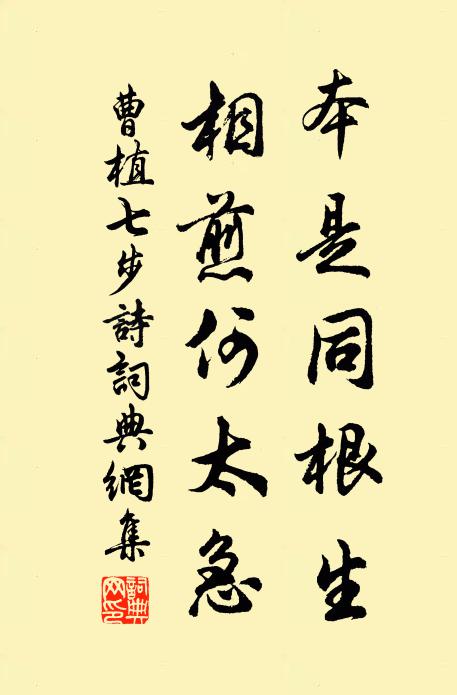 本是同根生
相煎何太急
曹植七步詩詞典網集
詞典網印